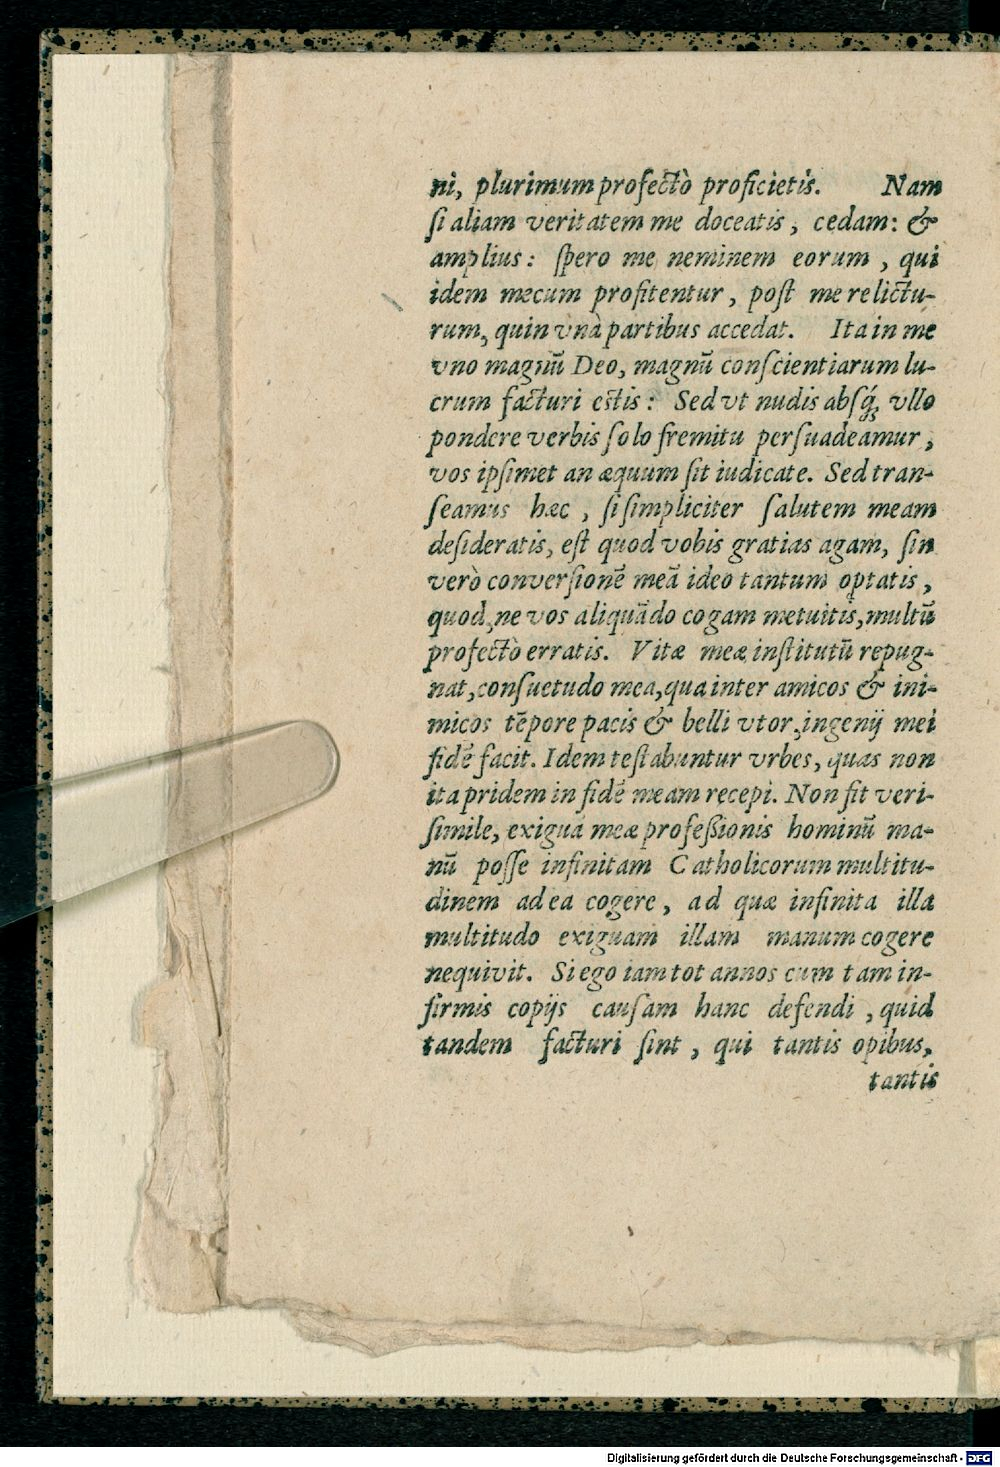 ni, plurimum profectò proficietis. Nam
ſi aliam veritatem me doceatis, cedam: &
amplius: ſpero me neminem eorum, qui
idem mecum profitentur, poſt me relictu-
rum, quin vnà partibus accedat. Ita in me
vno magnũ Deo, magnũ conſcientiarum lu-
crum facturi eſtis: Sed vt nudis abſq́; vllo
pondere verbis ſolo fremitu perſuadeamur,
vos ipſimet an æquum ſit iudicate. Sed tran-
ſeamus hæc, ſi ſimpliciter ſalutem meam
deſideratis, eſt quod vobis gratias agam, ſin
verò converſionẽ meã ideo tantum optatis,
quod, ne vos aliquãdo cogam metuitis, multũ
profectò erratis. Vitæ meæ inſtitutũ repug-
nat, conſuetudo mea, qua inter amicos & ini-
micos tẽpore pacis & belli vtor, ingenij mei
fidẽ facit. Idem teſtabuntur vrbes, quas non
ita pridem in fidẽ meam recepi. Non fit veri-
ſimile, exiguã meæ profeſsionis hominũ ma-
nũ poſſe infinitam Catholicorum multitu-
dinem ad ea cogere, ad quæ infinita illa
multitudo exiguam illam manum cogere
nequivit. Si ego iam tot annos cum tam in-
firmis copijs cauſam hanc defendi, quid
tandem facturi ſint, qui tantis opibus,
tantis
Digitalisierung gefördert durch die Deutsche Forschungsgemeinschaft - DFG